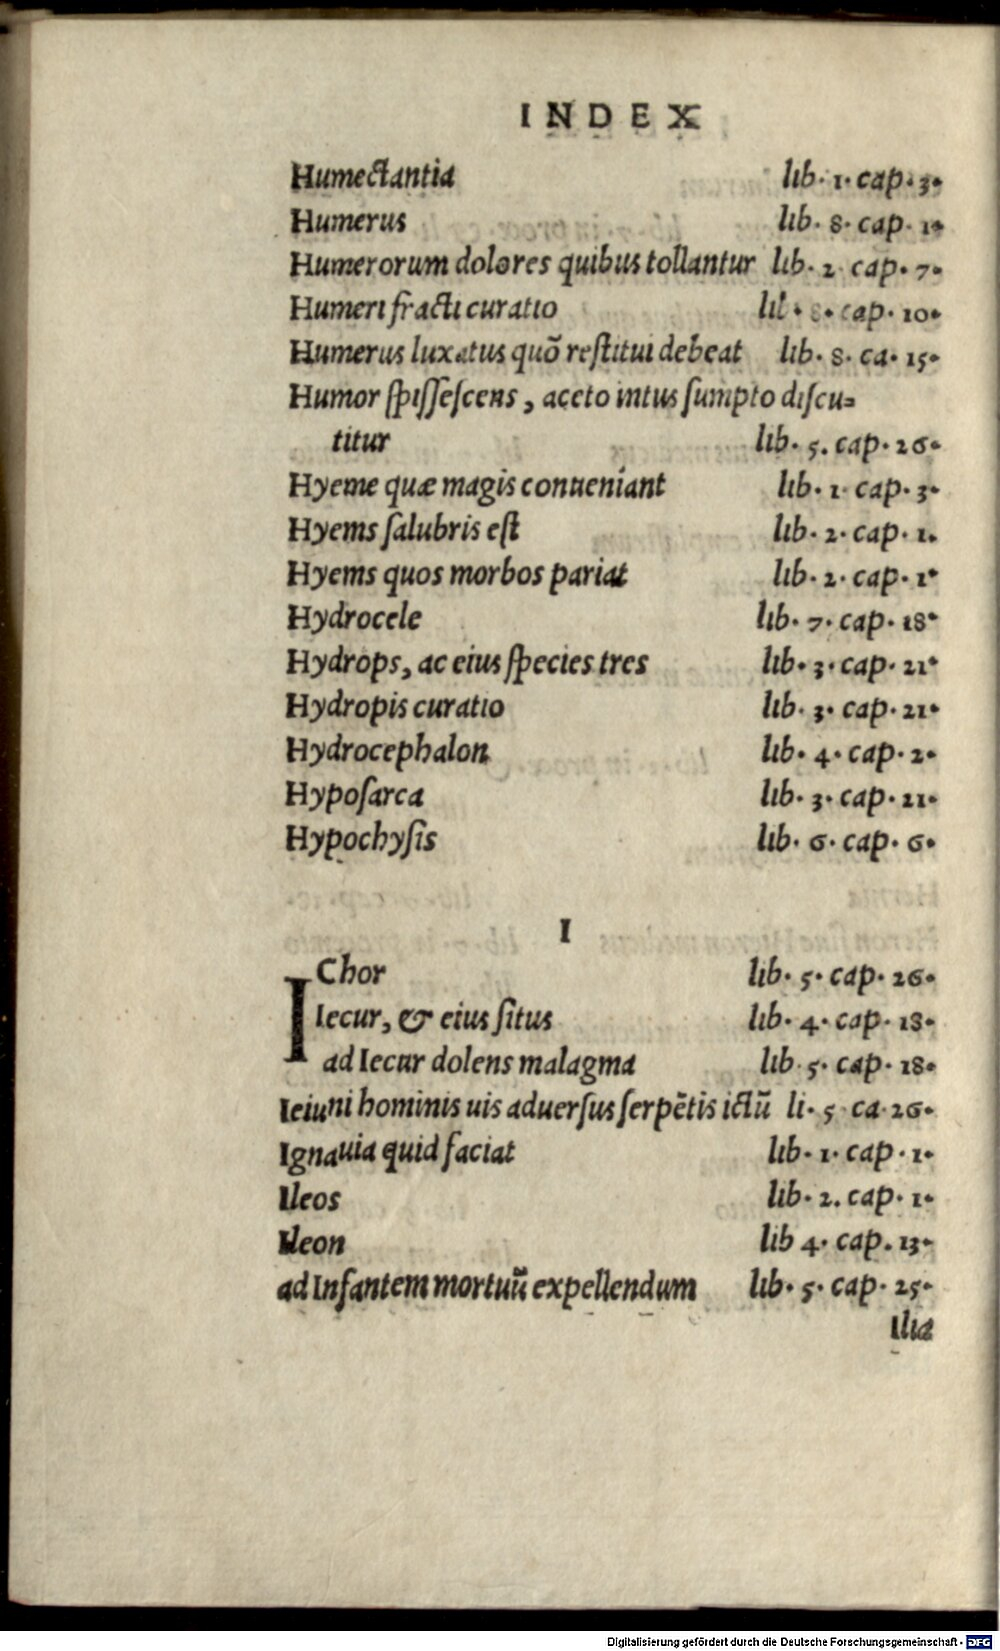 INDEX
Humectantia lib. 1. cap. 3.
Humerus lib. 8. cap. 1.
Humerorum dolores quibus tollantur lib. 2 cap. 7.
Humeri fracti curatio lib. 8. cap. 10.
Humerus luxatus quō reſtitui debeat lib. 8. ca. 15.
Humor ſpiſſeſcens, aceto intus ſumpto diſcu=
titur lib. 5. cap. 26.
Hyeme quæ magis conueniant lib. 1 cap. 3.
Hyems ſalubris eſt lib. 2. cap. 1.
Hyems quos morbos pariat lib. 2. cap. 1.
Hydrocele lib. 7. cap. 18.
Hydrops, ac eius ſpecies tres lib. 3. cap. 21.
Hydropis curatio lib. 3. cap. 21.
Hydrocephalon lib. 4. cap. 2.
Hypoſarca lib. 3. cap. 21.
Hypochyſis lib. 6. cap. 6.
I
IChor lib. 5. cap. 26.
Iecur, & eius ſitus lib. 4. cap. 18.
ad Iecur dolens malagma lib. 5. cap. 18.
Ieiuni hominis uis aduerſus ſerpētis ictū li. 5 ca. 26.
Ignauia quid faciat lib. 1. cap. 1.
Ileos lib. 2. cap. 1.
Ileon lib 4. cap. 13.
ad Infantem mortuū expellendum lib. 5. cap. 25.
Ilia
Digitalisierung gefördert durch die Deutsche Forschungsgemeinschaft - DFG